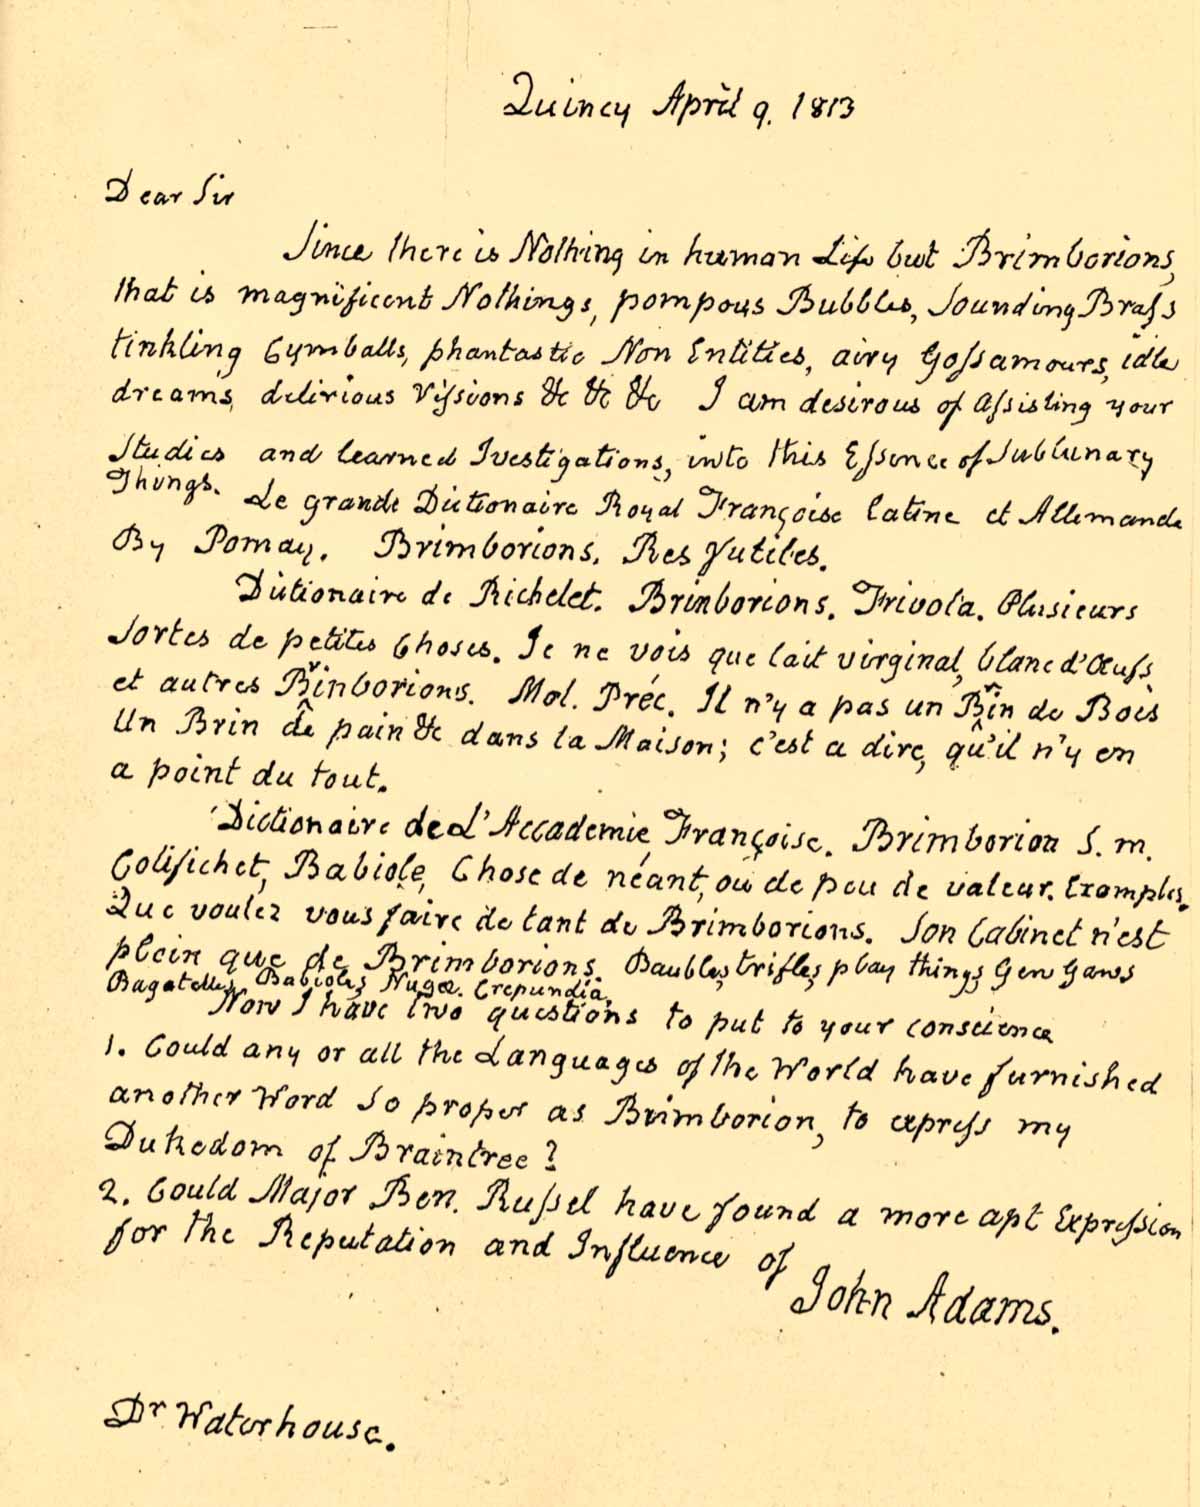 Quincy April 9. 1813
Dear Sir
Since there is Nothing in human Life but Brimborions,
that is magnificent Nothings, pompous Bubbles, Sounding Brass
tinkling Cymballs, phantastic Non Entities, airy Gossamours, idle
dreams, delirious Vissions &c &c &c I am desirous of assisting your
Studies and learned Ivestigations, into this Essence of Sublunary
Things. Le grande Dictionaire Royal Françoise latine et Allemande
By Pomay. Brimborions. Res futiles.
Dictionaire de Richelet. Brinborions. Frivola. Plusieurs
Sortes de petites Choses. Je ne vois que lait virginal, blanc d'Œufs
et autres Brinborions. Mol. Préc. Il n'y a pas un Brin de Bois
Un Brin de pain &c dans la Maison; c'est a dire, qu'il n'y en
a point du tout.
Dictionaire de L'Accademie Françoise. Brimborion S. m.
Colifichet, Babiole, Chose de néant, où de peu de valeur. Examples.
Que voulez vous faire de tant de Brimborions. Son Cabinet n'est
plein que de Brimborions. Baubles, trifles, play things, Gew Gaws
Bagatelles, Babioles, Nugæ. Crepundia.
Now I have two questions to put to your conscience
1. Could any or all the Languages of the World have furnished
another Word So proper as Brimborion, to express my
Dukedom of Braintree?
2. Could Major Ben. Russel have found a more apt Expression
for the Reputation and Influence of
John Adams.
Dr Waterhouse.